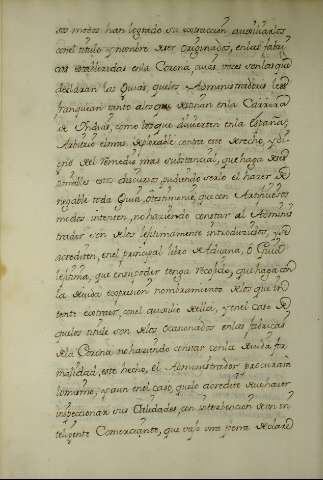 tos modos han logrado su extraccion auxiliarlos
con el titulo y nombre de ser originados, en las fabri
cas establecidas en la Corona, cuias voces son las que
declaran las Guias, que les Administradores les
franquean tanto a los que destinan en la Carrera
de Indias, como los que divierten en la España,
Arbitrio el mas deplorable contra este derecho, y di
gno del remedio mas substancial, que haga
este discurso, pudiendo serlo el hazer
negable toda Guia, o testimonio, que en
modos intenten, no haciendo constar al Adminis
trador son de los lexitimamente introducidos, y
acrediten, en el principal libro de Aduana, o Guia
lexitima, que en su poder tenga recogido, que haga con
la devida expresion nombramiento de los que in
tente extraer, con el auxilio de ellas, y en el caso de
que les titule son de los ocasionados en las fabricas
de la Corona no haciendo constar con la devida for
malidad, este hecho, el Administrador precisara
y aun en el caso, que lo acredite deve haver
inspeccionar sus Calidades, con intervencion de un in
teligente Comerciante, que vajo una pena declare